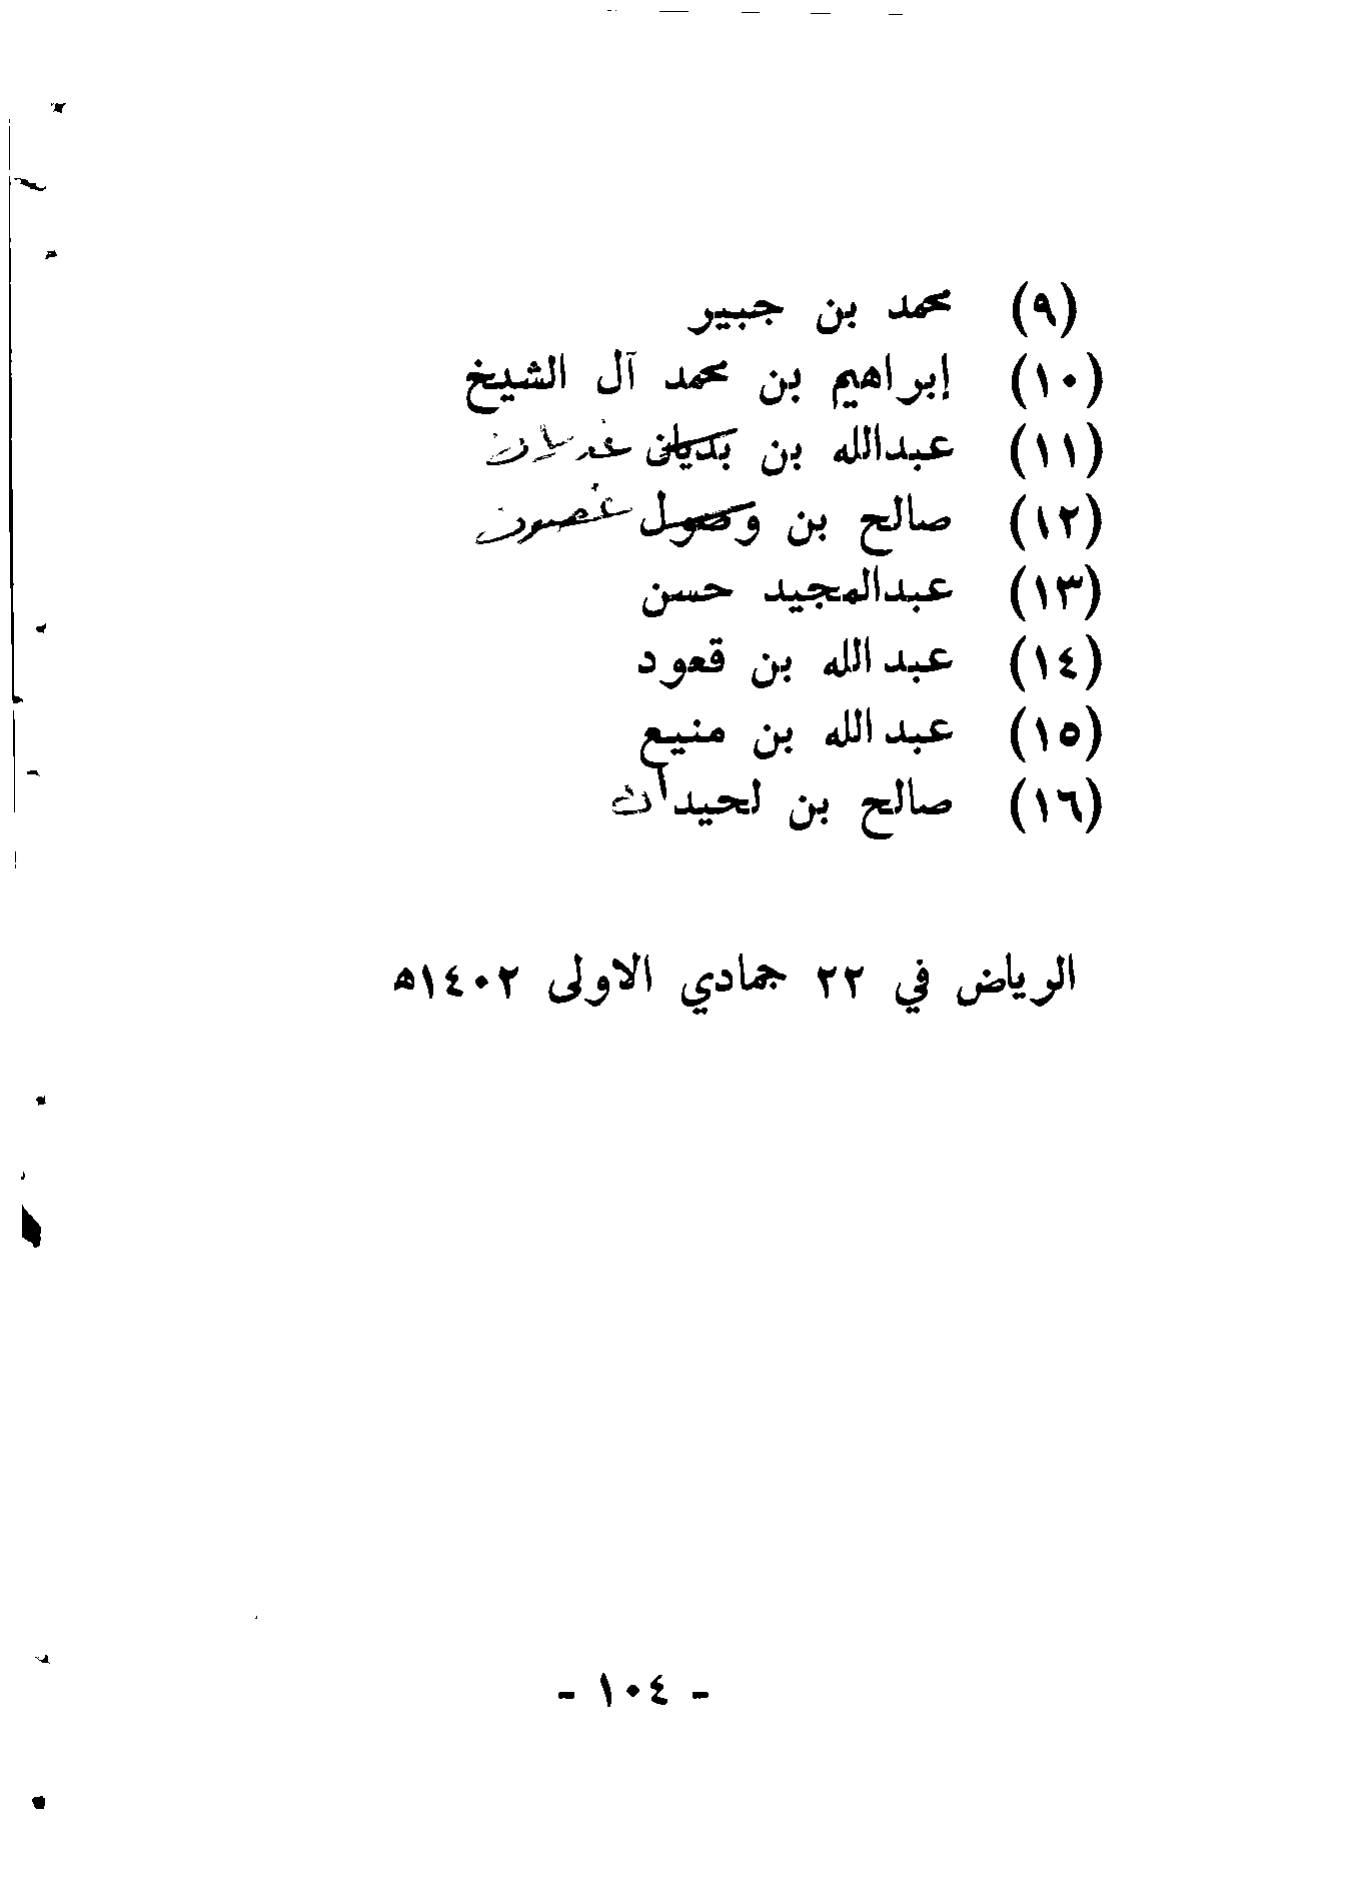 (٩) محمد بن جبير
(١٠) إبراهيم بن محمد آل الشيخ
(١١) عبدالله بن بديان غديان
(١٢) صالح بن وصول غصون
(١٣) عبدالمجيد حسن
(١٤) عبد الله بن قعود
(١٥) عبد الله بن منيع
(١٦) صالح بن لحيدان
الرياض في ٢٢ جمادي الاولى ١٤٠٢ه
- ١٠٤ -